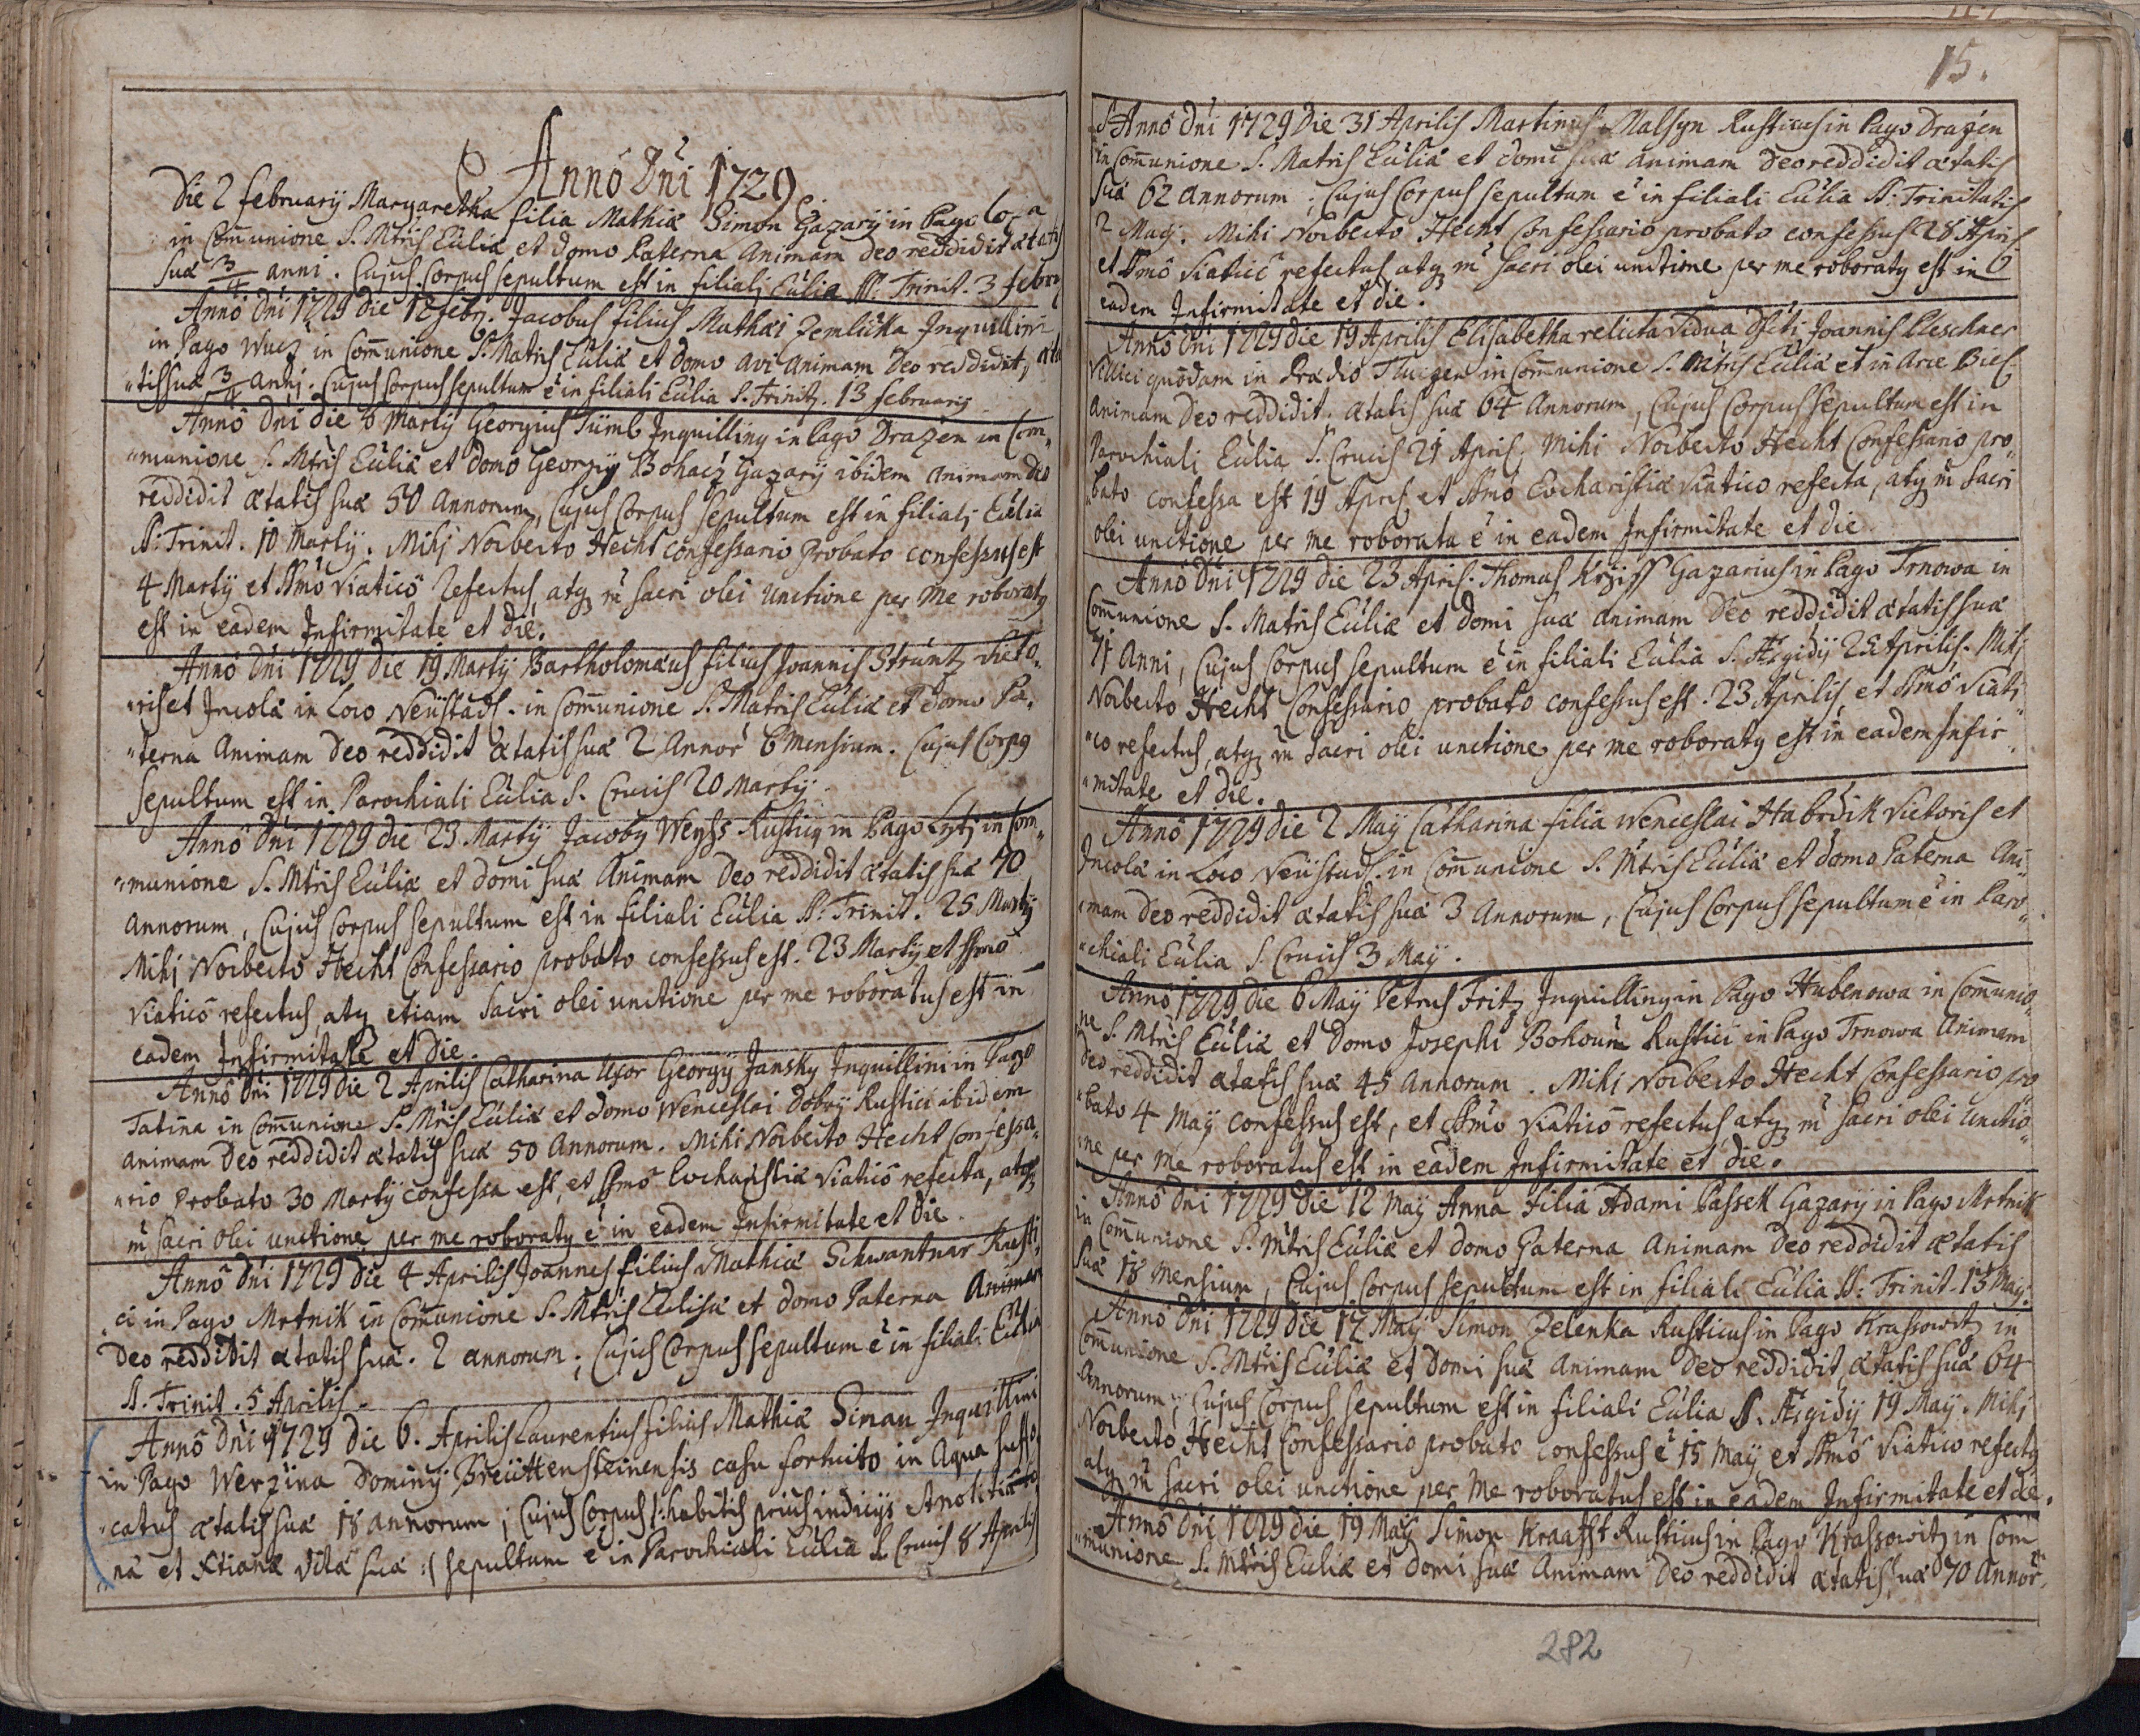 Annô Dni 1729
Die 2 februarij Margaretha filia Mathiæ Simon Gazarij in Pago
in Com̄unione S. Mtris Eůliæ et domo Paterna Animam Deo reddidit ætatis
suæ 3/4 anni. Cujus Corpus sepultum est in filiali Eůlia SS: Trinit. 3 febru
Annô Dni 1729 die 12 febr. Jacobus filius Mathæi Zemlicka Inquillini
in Pago Wucz in Com̄unione S. Matris Eůliæ et domo avi animam Deo reddidit, æta
"tis suæ 3/4 anni. Cujus Corpus sepultum ẽ in filiali Eůlia S. Trinit. 13 februarij
Annô Dni die 6 Martij Georgius Tümb Inquillinq in Pago Drazen in Com„
„munione S. Mtris Eůliæ et domo Georgij Bohacz Gazarij ibidem animam Deo
reddidit ætatis suæ 50 Annorum, Cujus Corpus sepultum est in filiali Eůlia
SS: Trinit. 10 Martij. Mihi Norberto Hecht confessario Probato confessus est
4 Martij et SSmô Viaticô Refectus, atq m̃ sacri olei Unctione per Me roboratq
est in eadem Infirmitate et die.
Annô Dni 1729 die 19 Martij Bartholomæus filius Joannis Strüntz Vieto„
„ris et Incolæ in Loco Neüstadl. in Com̄unione S. Matris Eůliæ et Domo Pa„
„terna Animam Deo reddidit ætatis suæ 2 Annor̃ 6 Mensium. Cujus Corpq
sepultum est in Parochiali Eůlia S. Crucis 20 Martij.
Annô Dni 1729 die 23 Martij Jacobq Weyss Rusticq in Pago Lytj in Com„
„munione S. Mtris Eůliæ et domi suæ Animam Deo reddidit ætatis suæ 70
Annorum, Cujus Corpus sepultum est in filiali Eůlia SS: Trinit. 25 Martij
Mihi Norberto Hecht Confessario probato confessus est. 23 Martij et SSmô
Viaticô refectus, atq etiam Sacri olei unctione per me roboratus est in
eadem Infirmitate et Die.
Annô Dni 1729 die 2 Aprilis Catharina Uxor Georgij Jansky Inquillini in Pago
Tatina in Com̄unione S. Mtris Eůliæ et domo Wenceslai Dobry Rustici ibidem
animam Deo reddidit ætatis suæ 50 Annorum. Mihi Norberto Hecht Confessa„
„rio Probato 30 Martij confessa est, et SSmô Eucharistiæ Viaticô refecta, atq
m̃ Sacri olei unctione per me roboratq ẽ in eadem Infirmitate et Die.
Annô Dni 1729 die 4 Aprilis Joannes filius Mathiæ Schwantnar Rusti„
„ci in Pago Mrtnik in Com̄unione S. Mtris Eůlisiæ et domo Paterna Animam
Deo reddidit ætatis suæ. 2 annorum; Cujus Corpus sepultum ẽ in filiali Eůlia
SS. Trinit. 5 Aprilis
Annô Dni 1729 die 6. Aprilis Laurentius filius Mathiæ Siman Inquillini
in Pago Werzina Dominij Breüttensteinensis casu fortuito in Aqua suffo„
„catus ætatis suæ 18 annorum; Cujus Corpus /: habitis prius indicijs
„na et Xtianæ vitæ suæ :/ sepultum ẽ in Parochiali Eůlia S. Crucis 8 Aprilis
15.
Annô Dni 1729 Die 31 Aprilis Martinus Malsyn Rusticus in Pago Drazen
in Com̄unione S. Matris Eůliæ et domi suæ animam Deo reddidit ætatis
suæ 62 annorum; Cujus Corpus sepultum ẽ in filiali Eůlia SS: Trinitatis
2 Maij. Mihi Norberto Hecht Confessario probato confessus 28 April.
et SSmô Viaticô refectus, atq m̃ Sacri olei unctione per me roboratq est in
eadem Infirmitate et die.
Annô Dni 1729 die 19 Aprilis Elisabetha relicta Vidua Joannis Pleschner
Villici quôdam in Prædio in Com̄unione S. Mtris Eůliæ et in Arce
animam Deo reddidit. ætatis suæ 64 Annorum, Cujus Corpus sepultum est in
Parochiali Eůlia S. Crucis 21 April. Mihi Norberto Hecht Confessario pro„
„bato confessa est 19 April. et SSmô Eucharistiæ Viatico refecta, atq m̃ Sacri
olei unctione per me roborata ẽ in eadem Infirmitate et die.
Annô Dni 1729 die 23 April. Thomas Krziss Gazarius in Pago Trnowa in
Com̄unione S. Matris Eůliæ et domi suæ animam Deo reddidit ætatis suæ
71 Anni, Cujus Corpus sepultum ẽ in filiali Eůlia S. Ægidij 25 Aprilis. Mihi
Norberto Hecht Confessario probato confessus est. 23 Aprilis, et SSmô Viati„
„co refectus, atq m̃ Sacri olei unctione per me roboratq est in eadem Infir„
„mitate et die.
Annô 1729 die 2 Maij Catharina filia Wenceslai Habrdik Vietoris et
Incolæ in Loco Neüstadl. in Com̄unione S. Mtris Eůliæ et domo Paterna Ani„
„mam Deo reddidit ætatis suæ 3 Annorum, Cujus Corpus sepultum ẽ in Paro„
„chiali Eůlia S. Crucis 3 Maij.
Annô 1729 die 6 Maij Petrus Fritz Inquillinq in Pago Hubenowa in Com̄unio„
ne S. Mtris Eůliæ et Domo Josephi Bohoum Rustici in Pago Trnowa Animam
Deo reddidit ætatis suæ 45 Annorum. Mihi Norberto Hecht Confessario pro
„bato 4 Maij confessus est, et SSmô Viaticô refectus, atq m̃ Sacri olei Unctio„
„ne per me roboratus est in eadem Infirmitate et die.
Annô Dni 1729 Die 12 Maij Anna filia Adami Passek Gazarij in Pago Mrtnik
in Com̄unione S. Mtris Eůliæ et domo Paterna Animam Deo reddidit ætatis
suæ 18 Mensium, Cujus Corpus sepultum est in filiali Eůlia SS: Trinit. 13 Maij.
Annô Dni 1729 die 17 Maij Simon Zelenka Rusticus in Pago Krassowitz in
Com̄unione S. Mtris Eůliæ et domi suæ animam Deo reddidit, ætatis suæ 64
Annorum; Cujus Corpus sepultum est in filiali Eůlia S. Ægidij 19 Maij. Mihi
Norberto Hecht Confessario probato confessus ẽ 15 Maij et SSmô Viatico refectq
atq m̃ Sacri olei unctione per Me roboratus est in eadem Infirmitate et die.
Annô Dni 1729 die 19 Maij Simon Kraafft Rusticus in Pago Krassowitz in Com
„munione S. Mtris Eůliæ et domi suæ Animam Deo reddidit ætatis suæ 70 Annor̃
282